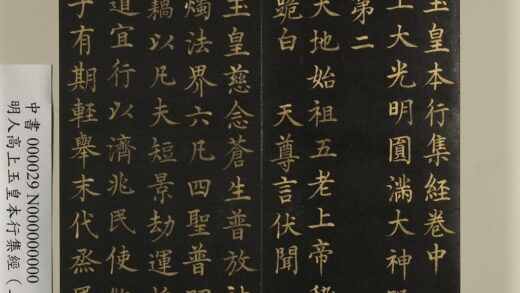 玉皇本行集經卷中
上大光明圓滿大神
第二
天地始祖五老上帝
跪白　天尊言伏聞
玉皇慈念蒼生普放
燭法界六凡四聖普
以凡夫短景劫運
道宜行以濟兆民使
子有期輕舉末代烝
中書 000029 N000000000
明人高上玉皇本行集經（